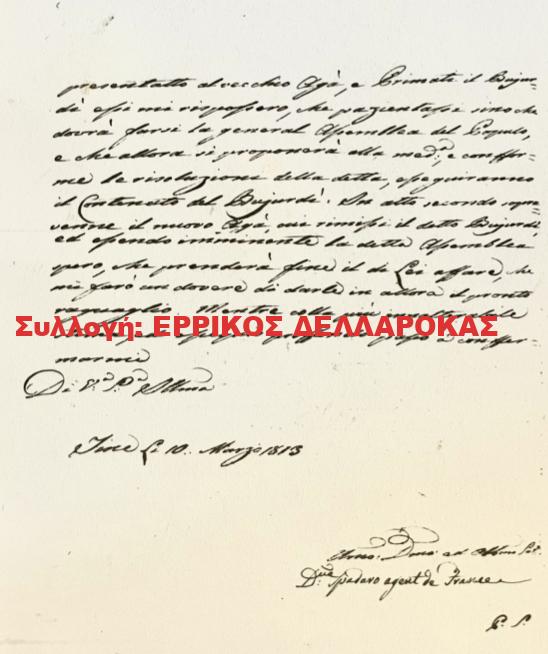 presentatto al vecchio Agà, e Primati il Bujur-
dì essi mi rispossero, che pazientassi sino che
dovrà farsi la general Asemblea del Popolo,
e che allora si proponerà alla med:ª, e conffor-
me la risoluzione della detta, eseguiranno
il Contenuto del Bujurdì. In atto secondo sopra-
venne il nuovo Agà, mi rimissi il detto Bujurdì
ed essendo imminente la detta Asemblea
spero, che prenderà fine il di Lei affare, che
mi farò un dovere di darle in allora il pronto
Mentre colla più
Συλλογή: ΕΡΡΙΚΟΣ ΔΕΛΛΑΡΟΚΑΣ
passo a conffer-
marmi
Di V.ª S.ª Illma
Tine Li 10. Marzo 1813
agent de France
P. S.